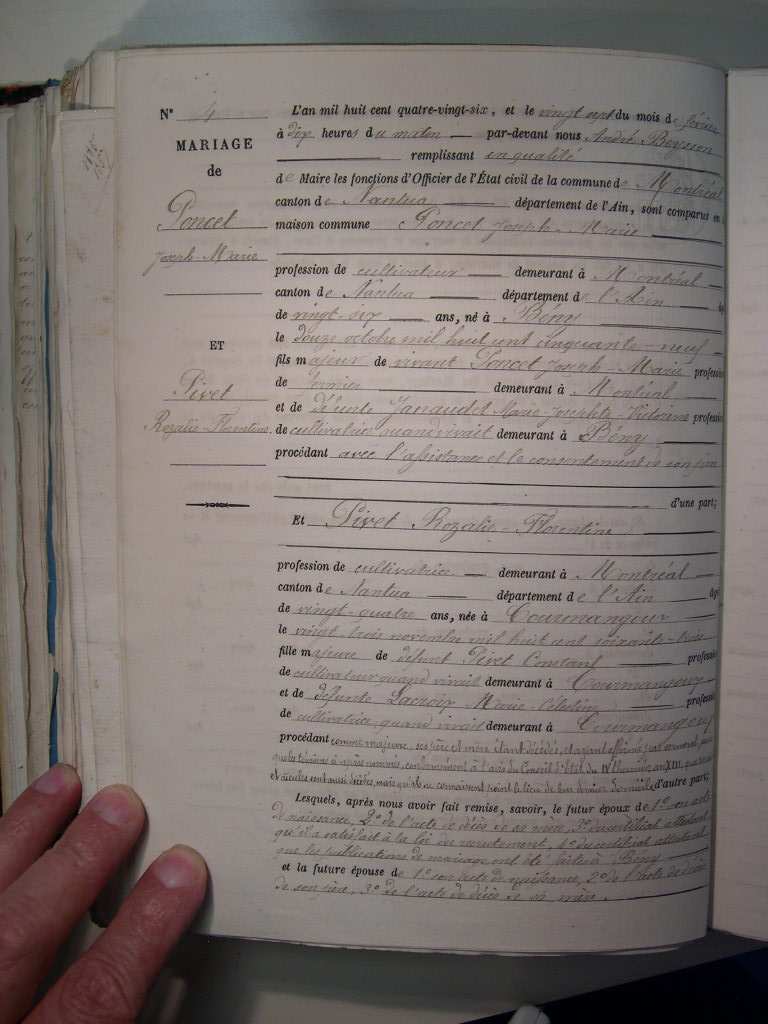 N° 4
MARIAGE
de
Poncet
Joseph-Marie
ET
Pivet
Rozalie-Florentine
L'an mil huit cent quatre-vingt-six, et le vingt sept du mois de février
à dix heures du matin par-devant nous André Boysson
remplissant en qualité
de Maire les fonctions d'Officier de l'État civil de la commune de Montréal
canton de Nantua département de l'Ain, sont comparus en
maison commune Poncet Joseph-Marie
profession de cultivateur demeurant à Montréal
canton de Nantua département de l'Ain âgé
de vingt-six ans, né à Bény
le douze octobre mil huit cent cinquante-neuf
fils majeur de vivant Poncet Joseph-Marie profession
de fermier demeurant à Montréal
et de défunte Janaudet Marie-Josephte-Victorine profession
de cultivatrice quand vivait demeurant à Bény
procédant avec l'assistance et le consentement de son père
d'une part;
Et Pivet Rozalie-Florentine
profession de cultivatrice demeurant à Montréal
canton de Nantua département de l'Ain âgée
de vingt-quatre ans, née à Courmangoux
le vingt-trois novembre mil huit cent soixante-trois
fille majeure de défunt Pivet Constant profession
de cultivateur quand vivait demeurant à Courmangoux
et de défunte Lacroix Marie-Célestine profession
de cultivatrice quand vivait demeurant à Courmangoux
procédant comme majeure, ses père et mère étant décédés, et ayant affirmé par serment, ainsi
que les témoins ci-après nommés, conformément à l'avis du Conseil d'État du IV thermidor an XIII, que ses aïeuls
et aïeules sont aussi décédés, mais qu'ils ne connaissent point le lieu de leur dernier domicile, d'autre part;
Lesquels, après nous avoir fait remise, savoir, le futur époux de 1° son acte
de naissance, 2° de l'acte de décès de sa mère, 3° du certificat attestant
qu'il a satisfait à la loi du recrutement, 4° du certificat attestant
que les publications de mariage ont été faites à Bény
et la future épouse de 1° son acte de naissance, 2° de l'acte de décès
de son père, 3° de l'acte de décès de sa mère.